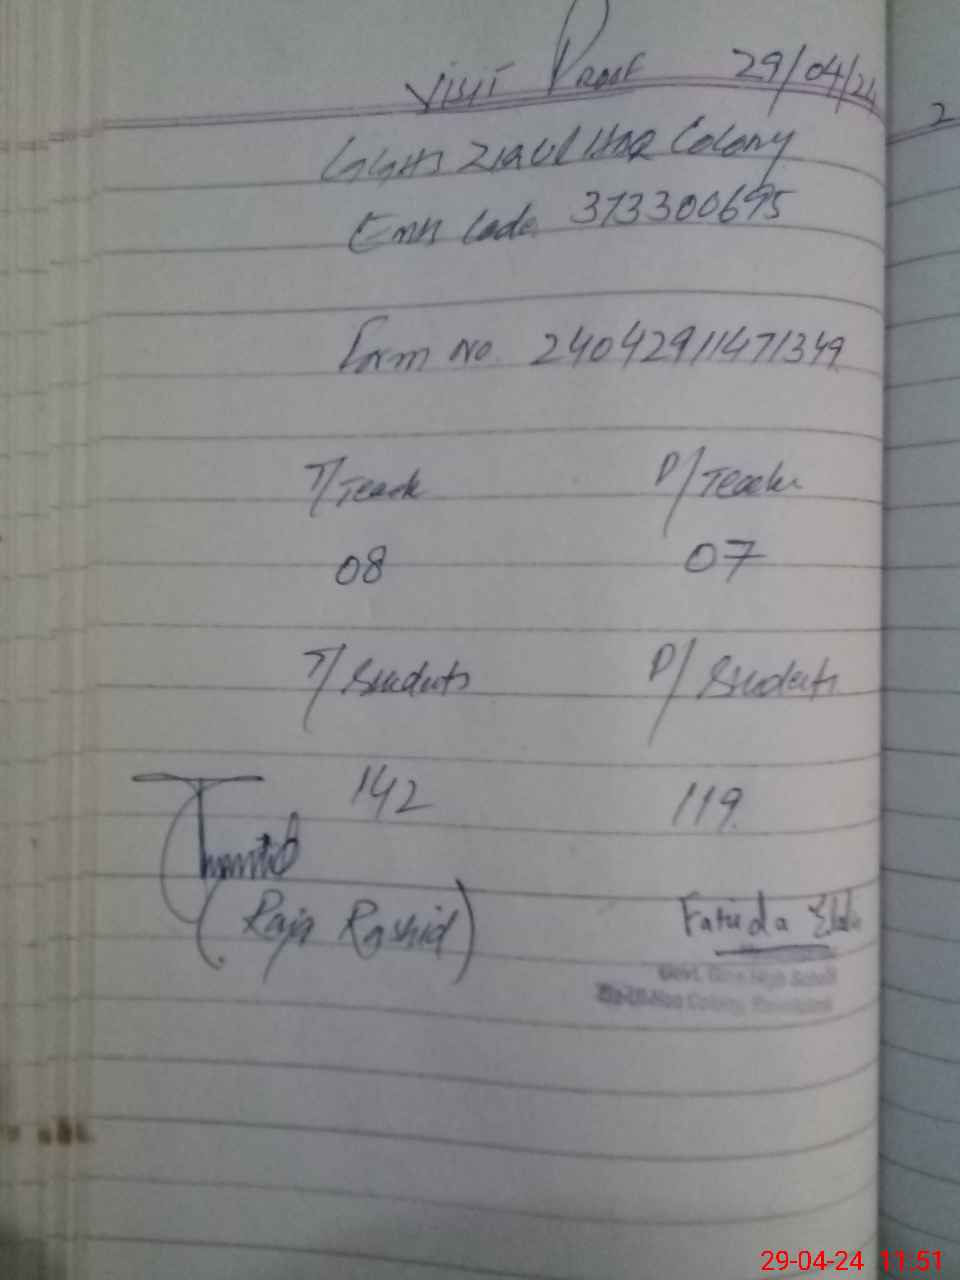 Visit Proof 29/04/24
GGHS Zia Ul Haq Colony
Emis Code 373300695
Form No 24042911471349
T/Teach P/Teacher
08 07
T/Students P/Students
142 119
(Raja Rashid) Farida
Govt. Girls High School
Zia-Ul-Haq Colony,
29-04-24 11:51